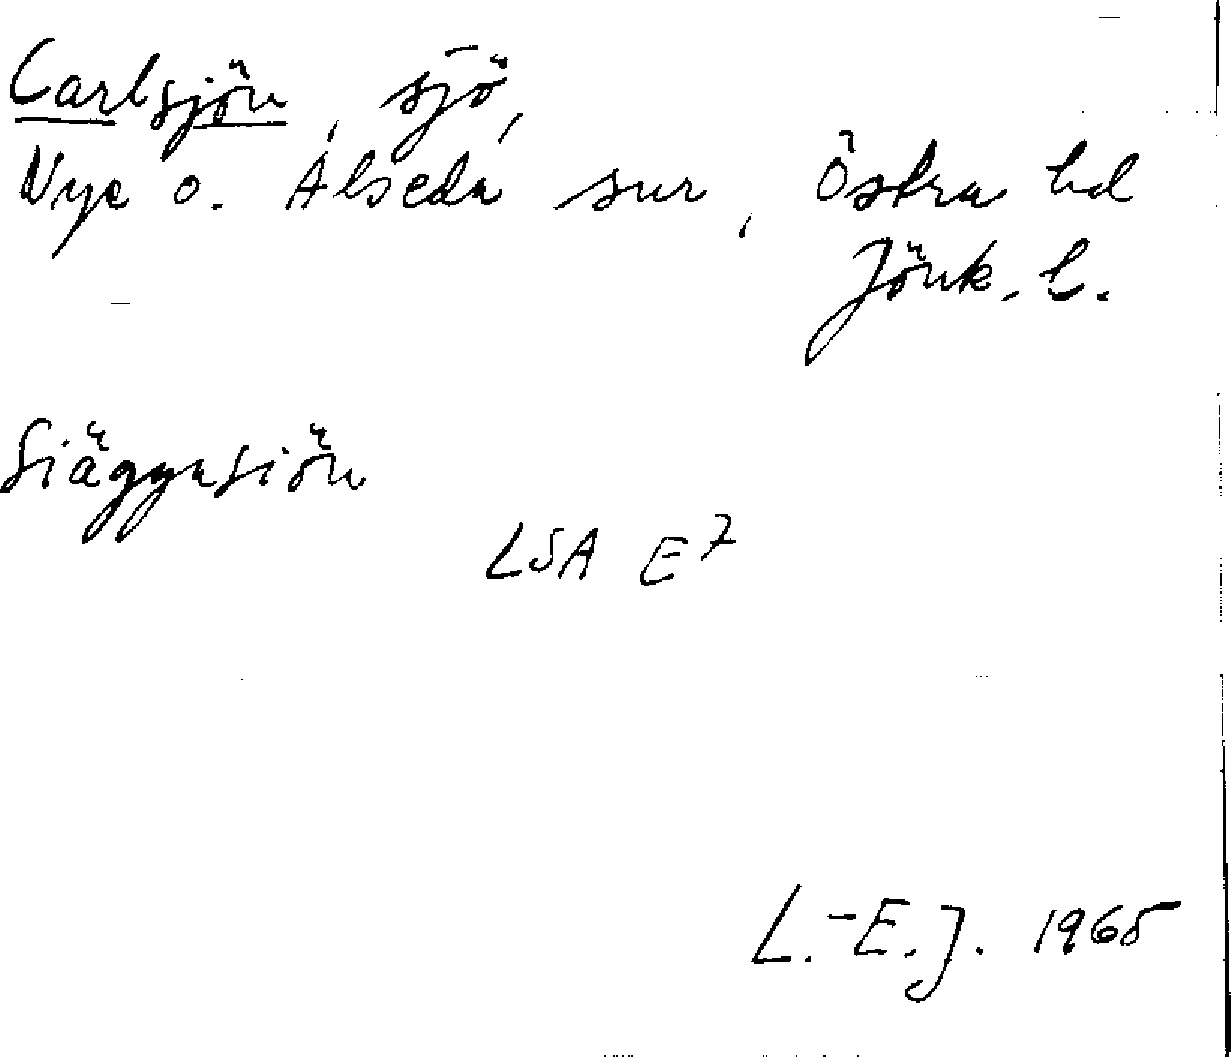 Carlsjön, sjö,
Nye o. Alseda snr, Östra hd
Jönk. l.
Siäggasiön
LSA E7
L.-E.J. 1965